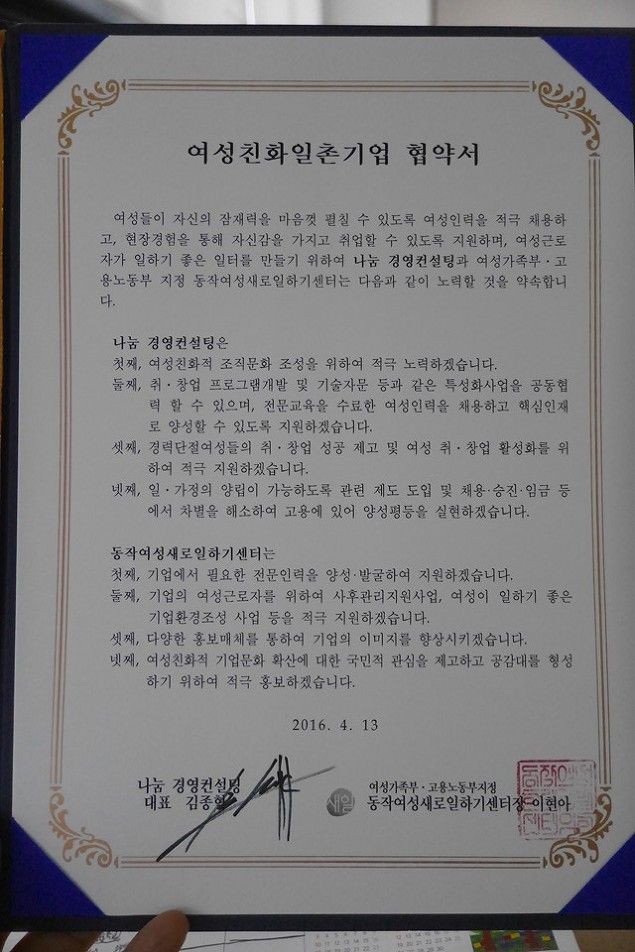 여성친화일촌기업 협약서
여성들이 자신의 잠재력을 마음껏 펼칠 수 있도록 여성인력을 적극 채용하
고, 현장경험을 통해 자신감을 가지고 취업할 수 있도록 지원하며, 여성근로
자가 일하기 좋은 일터를 만들기 위하여 나눔 경영컨설팅과 여성가족부·고
용노동부 지정 동작여성새로일하기센터는 다음과 같이 노력할 것을 약속합니
다.
나눔 경영컨설팅은
첫째, 여성친화적 조직문화 조성을 위하여 적극 노력하겠습니다.
둘째, 취·창업 프로그램개발 및 기술자문 등과 같은 특성화사업을 공동협
력 할 수 있으며, 전문교육을 수료한 여성인력을 채용하고 핵심인재
로 양성할 수 있도록 지원하겠습니다.
셋째, 경력단절여성들의 취·창업 성공 제고 및 여성 취·창업 활성화를 위
하여 적극 지원하겠습니다.
넷째, 일·가정의 양립이 가능하도록 관련 제도 도입 및 채용·승진·임금 등
에서 차별을 해소하여 고용에 있어 양성평등을 실현하겠습니다.
동작여성새로일하기센터는
첫째, 기업에서 필요한 전문인력을 양성·발굴하여 지원하겠습니다.
둘째, 기업의 여성근로자를 위하여 사후관리지원사업, 여성이 일하기 좋은
기업환경조성 사업 등을 적극 지원하겠습니다.
셋째, 다양한 홍보매체를 통하여 기업의 이미지를 향상시키겠습니다.
넷째, 여성친화적 기업문화 확산에 대한 국민적 관심을 제고하고 공감대를 형성
하기 위하여 적극 홍보하겠습니다.
2016. 4. 13
나눔 경영컨설팅
대표
새일
여성가족부·고용노동부지정
동작여성새로일하기센터장 이현아